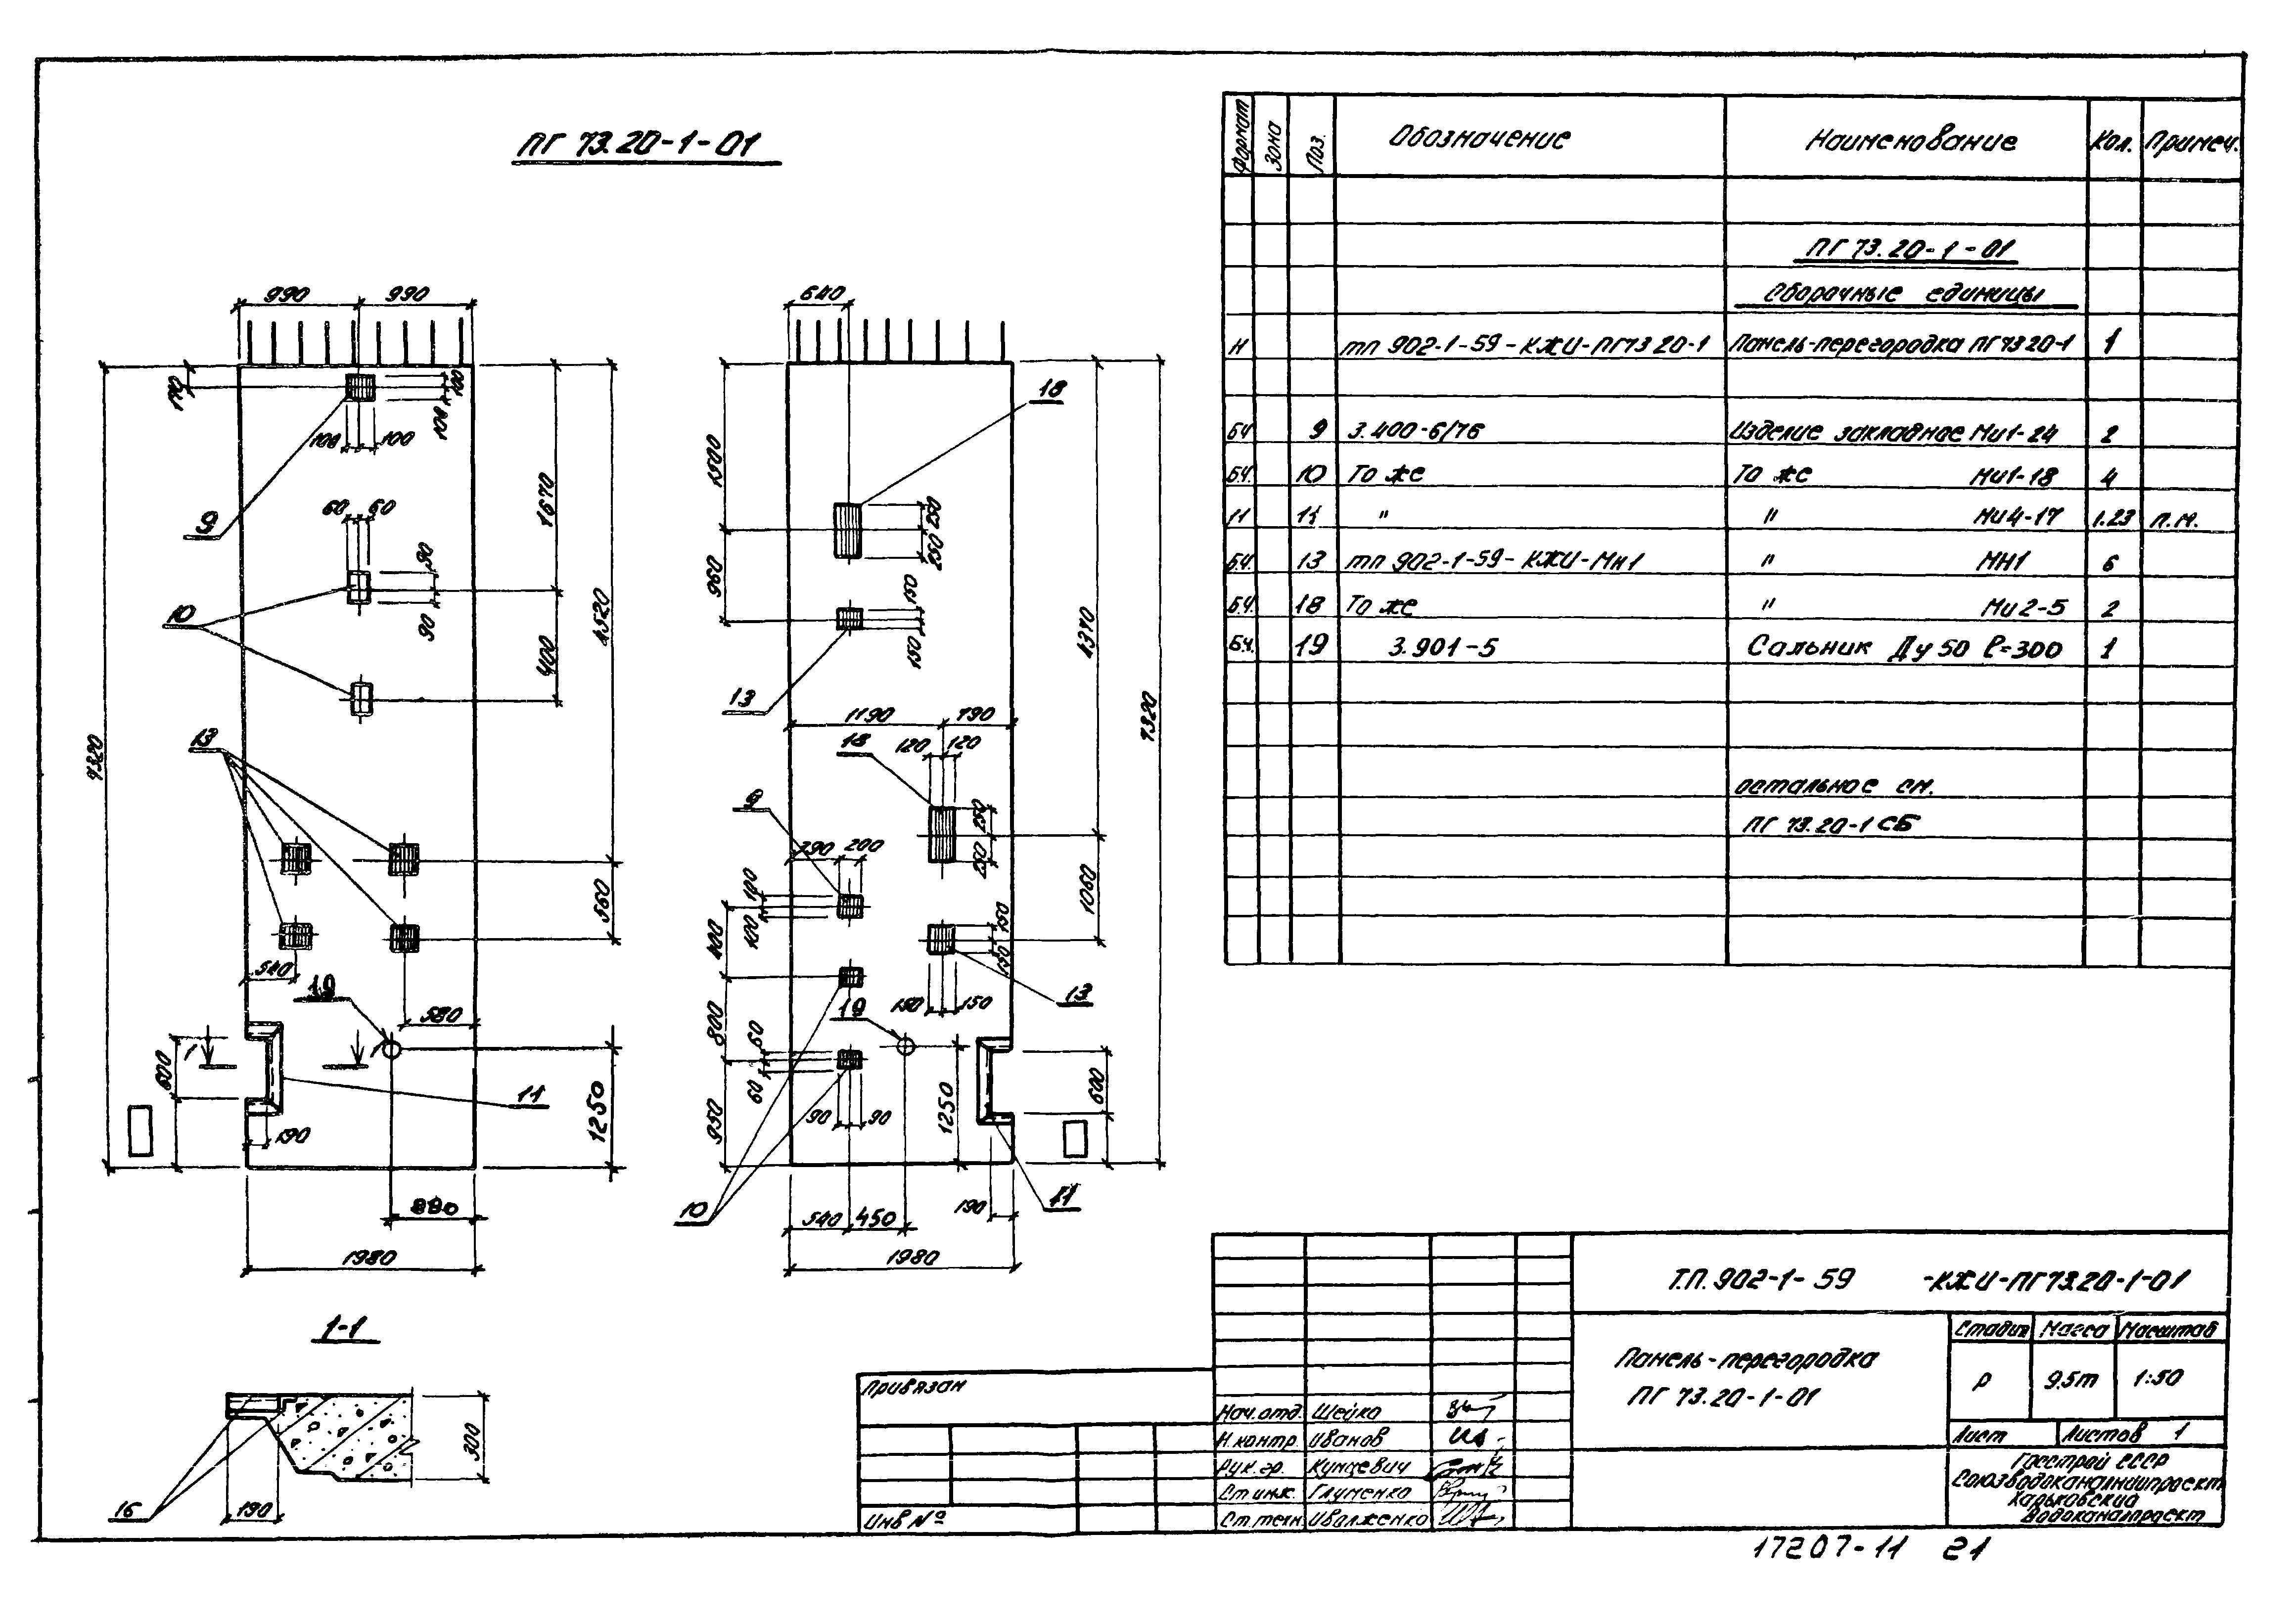 ПГ 73.20-1-01
990 990
170
100 100
100 100
9
60 60
90
90
10
1670
400
4520
560
7320
13
540
19
580
600
1 1
11
190
1250
880
1980
640
1500
960
18
250
250
150
150
13
4370
7320
1190 790
18
120 120
9
390 200
250
250
100
100
400
1060
150
150
13
150 150
19
800
60
60
90 90
950
1250
600
10
540 450
190
11
1980
1-1
300
190
16
Формат Зона Поз. Обозначение Наименование Кол. Примеч.
ПГ 73.20-1-01
Сборочные единицы
И тп 902-1-59-КЖИ-ПГ73 20-1 Панель-перегородка ПГ73 20-1 1
БЧ 9 3.400-6/76 Изделие закладное Ми1-24 2
Б.Ч. 10 То же То же Ми1-18 4
11 11 " " Ми4-17 1.23 п.м.
Б.Ч. 13 тп 902-1-59-КЖИ-Мн1 " МН1 6
Б.Ч. 18 То же " Ми2-5 2
Б.Ч. 19 3.901-5 Сальник Ду 50 ℓ=300 1
остальное см.
ПГ 73.20-1 СБ
Т.П. 902-1-59 -КЖИ-ПГ73.20-1-01
Панель-перегородка
ПГ 73.20-1-01
Стадия Масса Масштаб
Р 9,5т 1:50
Лист Листов 1
Госстрой СССР
Союзводоканалниипроект
Харьковский
Водоканалпроект
Привязан
Инв №
Нач.отд. Шейко
Н.контр. Иванов
Рук.гр. Кунцевич
Ст.инж. Глуменко
Ст.техн.
17207-11 21